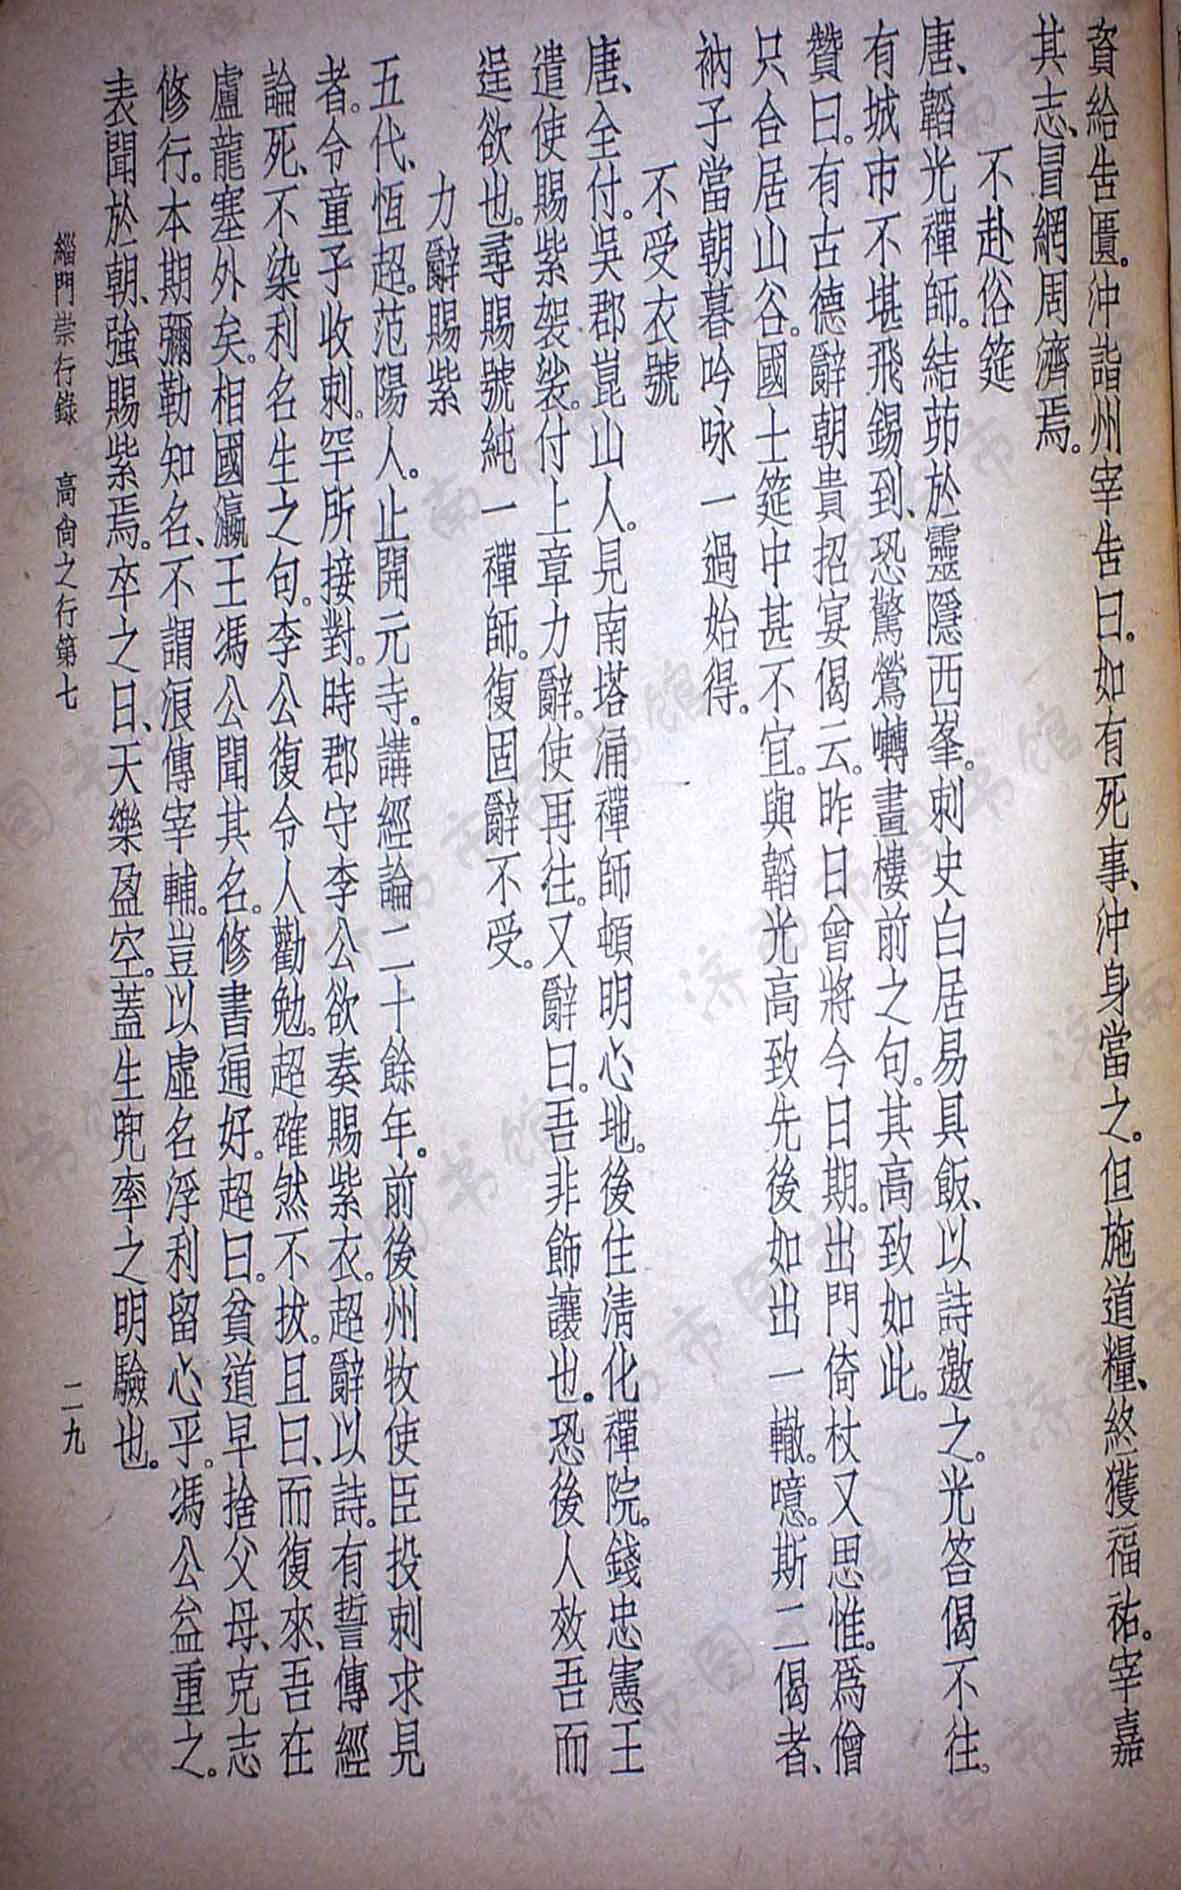 資給告匱。沖詣州宰告曰。如有死事、沖身當之。但施道糧、終獲福祐。宰嘉
其志、冒網周濟焉。
不赴俗筵
唐、韜光禪師。結茆於靈隱西峯。刺史白居易具飯、以詩邀之。光答偈不往。
有城市不堪飛錫到、恐驚鶯囀畫樓前之句。其高致如此。
贊曰。有古德辭朝貴招宴偈云。昨日曾將今日期。出門倚杖又思惟。爲僧
只合居山谷。國士筵中甚不宜。與韜光高致先後如出一轍。噫。斯二偈者、
衲子當朝暮吟咏一過始得。
不受衣號
唐、全付。吳郡崑山人。見南塔涌禪師頓明心地。後住淸化禪院。錢忠憲王
遣使賜紫袈裟。付上章力辭。使再往。又辭曰。吾非飾讓也。恐後人效吾而
逞欲也。尋賜號純一禪師。復固辭不受。
力辭賜紫
五代、恆超。范陽人。止開元寺。講經論二十餘年。前後州牧使臣投刺求見
者。令童子收刺。罕所接對。時郡守李公欲奏賜紫衣。超辭以詩。有誓傳經
論死、不染利名生之句。李公復令人勸勉。超確然不拔。且曰、而復來、吾在
盧龍塞外矣。相國瀛王馮公聞其名。修書通好。超曰。貧道早捨父母、克志
修行。本期彌勒知名、不謂浪傳宰輔。豈以虛名浮利留心乎。馮公益重之。
表聞於朝、強賜紫焉。卒之日、天樂盈空。蓋生兜率之明驗也。
緇門崇行錄 高尙之行第七 二九